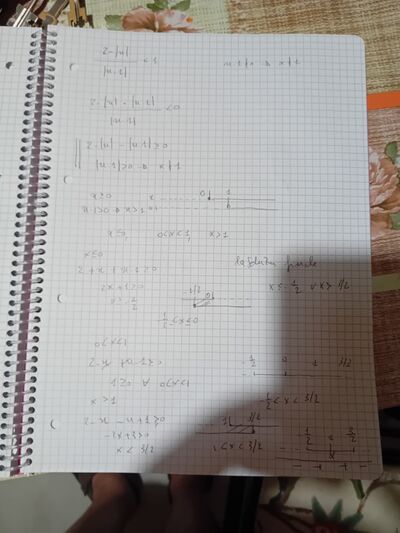 2-|x|
|x-1| < 1
x-1≠0 ⇒ x≠1
2-|x| - |x-1| < 0
|x-1|
2-|x| - |x-1| ≥ 0
|x-1| > 0 ⇒ x≠1
x≥0 x 0 1
x-1>0 ⇒ x>1
x≤0, 0<x<1, x>1
x≤0
2+x+x-1≥0
2x+1≥0
x≥-1/2
-1/2 0
1/2<x≤0
la soluzione finale
x≤-1/2 ∨ x>3/2
0<x<1
2-x+x-1≥0
1≥0 ∀ 0<x<1
-1/2 0 1 3/2
-1/2<x<3/2
x>1
2-x-x+1≥0
-2x+3≥0
x<3/2
1 3/2
1<x<3/2
-1/2 1 3/2
- + + -